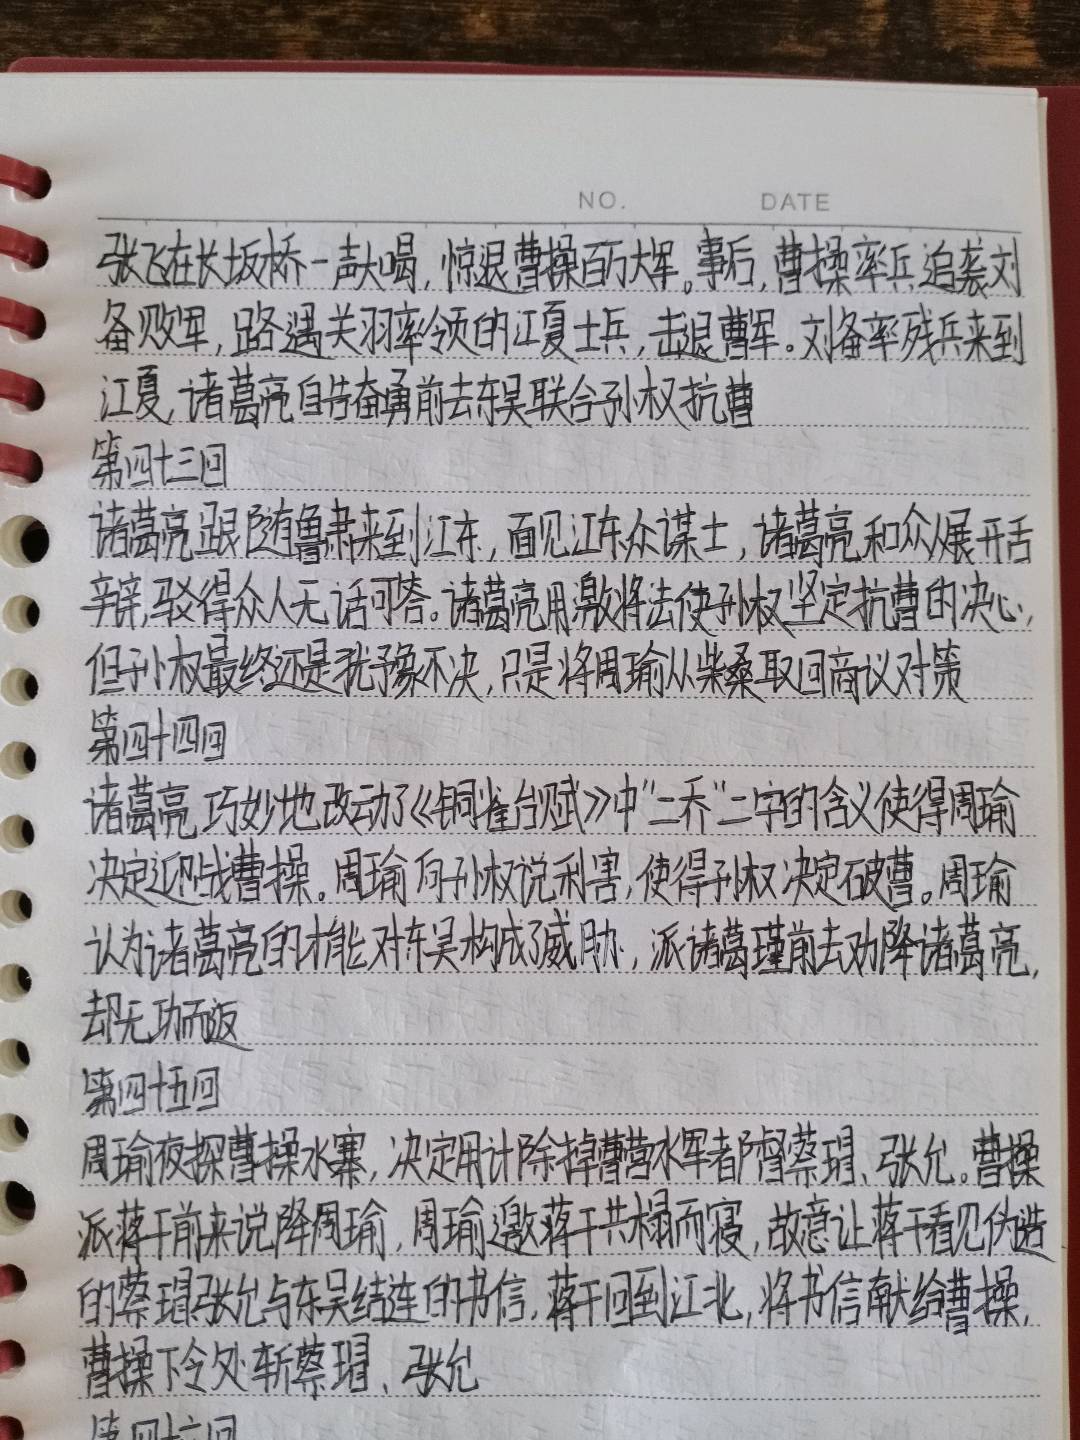 NO. DATE
张飞在长坂桥一声大喝,惊退曹操百万大军。事后,曹操率兵追袭刘
备败军,路遇关羽率领的江夏士兵,击退曹军。刘备率残兵来到
江夏,诸葛亮自告奋勇前去东吴联合孙权抗曹
第四十三回
诸葛亮跟随鲁肃来到江东,面见江东众谋士,诸葛亮和众人展开舌
辩,驳得众人无话可答。诸葛亮用激将法使孙权坚定抗曹的决心,
但孙权最终还是犹予豫不决,只是将周瑜从柴桑取回商议对策
第四十四回
诸葛亮巧妙地改动了《铜雀台赋》中“二乔”二字的含义使得周瑜
决定迎战曹操。周瑜向孙权说利害,使得孙权决定破曹。周瑜
认为诸葛亮的才能对东吴构成了威胁,派诸葛瑾前去劝降诸葛亮,
却无功而返
第四十五回
周瑜夜探曹操水寨,决定用计除掉曹营水军都督蔡瑁、张允。曹操
派蒋干前来说降周瑜,周瑜邀蒋干共榻而寝,故意让蒋干看见伪造
的蔡瑁张允与东吴结连的书信,蒋干回到江北,将书信献给曹操,
曹操下令处斩蔡瑁、张允
第四十六回